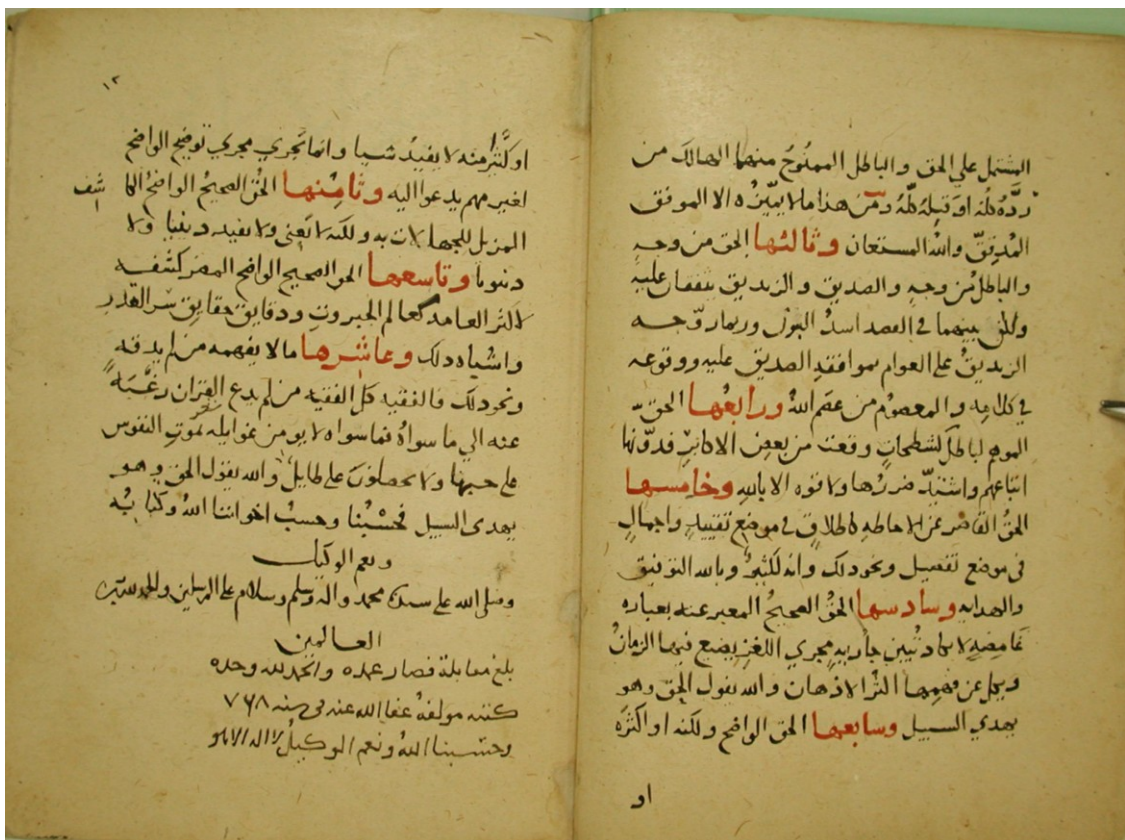 المشتمل على الحق والباطل الممنوح منهما الهالك من
ردّه كله او قبله كله ومن هذا ما لا يميّزه الا الموفق
المدقق والله المستعان وثالثها الحق من وجه
والباطل من وجه والصديق والزنديق يتفقان عليه
ولكن بينهما في القصد اشدّ البون وربما روّجه
الزنديق على العوام بموافقة الصديق عليه ووقوعه
في كلامه والمعصوم من عصم الله ورابعها الحق
الموهم لباطل كشطحات وقعت من بعض الاكابر فدوّنها
اتباعهم واشتدّ ضررها ولا قوه الا بالله وخامسها
الحق القاصر عن الاحاطه كاطلاق في موضع تقييد واجمال
في موضع تفصيل ونحو ذلك وانه لكثير وبالله التوفيق
والهدايه وسادسها الحق الصحيح المعبر عنه بعباره
غامضه لا تكاد تبين جاريه مجري اللغز يضيع فيها الزمان
ويكل عن فهمها اكثر الاذهان والله يقول الحق وهو
يهدي السبيل وسابعها الحق الواضح ولكنه او اكثره
او
١٢
او كثيرا منه لا يفيد شيا وانما تجري مجري توضيح الواضح
لغير مهم يدعوا اليه وثامنها الحق الصحيح الواضح الكاشف
المزيل للجهالات به ولكنه لا يعني ولا يفيد دينيا ولا
دنيويا وتاسعها الحق الصحيح الواضح المضر كشفه
لاكثر العامه كعالم الجبروت ودقايق حقايق سر القدر
واشباه ذلك وعاشرها ما لا يفهمه من لم يذقه
ونحو ذلك فالفقيه كل الفقيه من لم يدع القران رغبة
عنه الي ما سواه فما سواه لا يومن غوايله تموت النفوس
علي حبها ولا يحصلون علي طايل والله يقول الحق وهو
يهدي السبيل فحسبنا وحسب اخواننا الله وكتابه
ونعم الوكيل
وصلى الله على سيدنا محمد واله وسلم وسلام على المرسلين والحمد لله رب
العالمين
بلغ مقابلة فصار عمده والحمد لله وحده
كتبه مولفه عفا الله عنه في سنه ٧٦٨
وحسبنا الله ونعم الوكيل لا اله الا هو